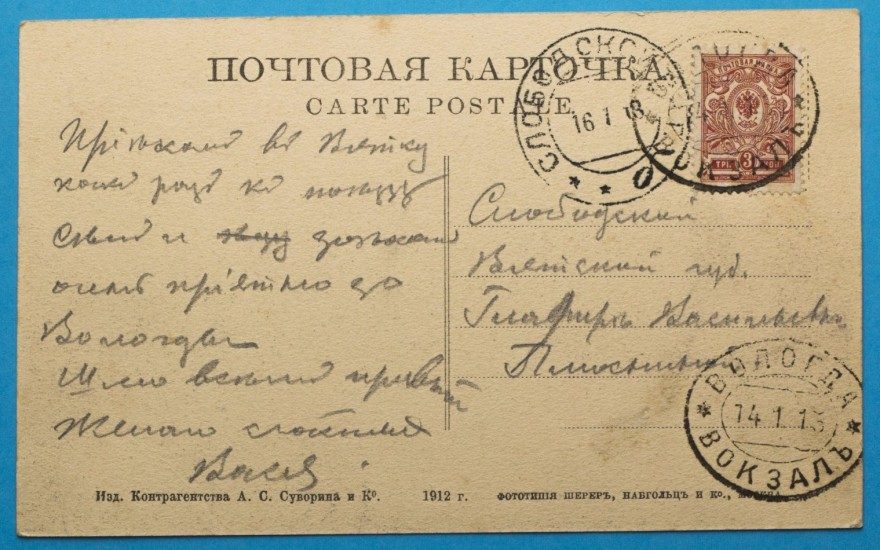 ПОЧТОВАЯ КАРТОЧКА
CARTE POSTALE
Пріѣхали въ Вятку
какъ разъ къ поѣзду
сѣли и доѣхали
очень пріятно до
Вологды
Шлю всѣмъ привѣтъ
Желаю
Вася.
СЛОБОДСКОЙ
16 1 13
ВОЛОГДА
ВОКЗАЛЪ
ТРИ 3 КОП
Слободский
Вятский губ.
Глафирѣ Васильевнѣ
ВОЛОГДА
14 1 13
ВОКЗАЛЪ
Изд. Контрагентства А. С. Суворина и Ко.
1912 г.
ФОТОТИПІЯ ШЕРЕРЪ, НАБГОЛЬЦЪ И Ко., МОСКВА.